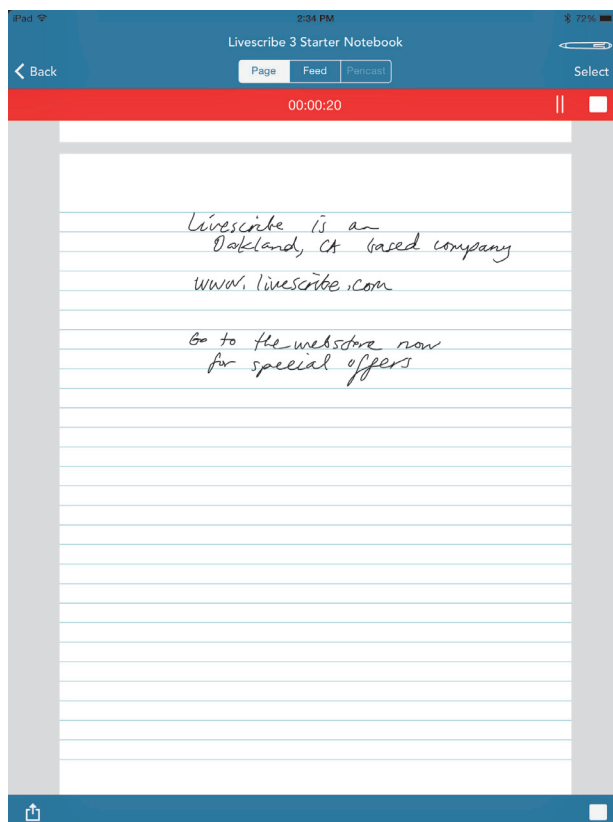 iPad 2:34 PM 72%
Livescribe 3 Starter Notebook
Back Page Feed Pencast Select
00:00:20
Livescribe is an
Oakland, CA based company
www.livescribe.com
Go to the webstore now
for special offers